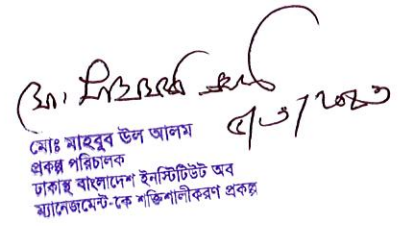 মোঃ মাহবুব উল আলম
প্রকল্প পরিচালক
ঢাকাস্থ বাংলাদেশ ইনস্টিটিউট অব
ম্যানেজমেন্ট-কে শক্তিশালীকরণ প্রকল্প